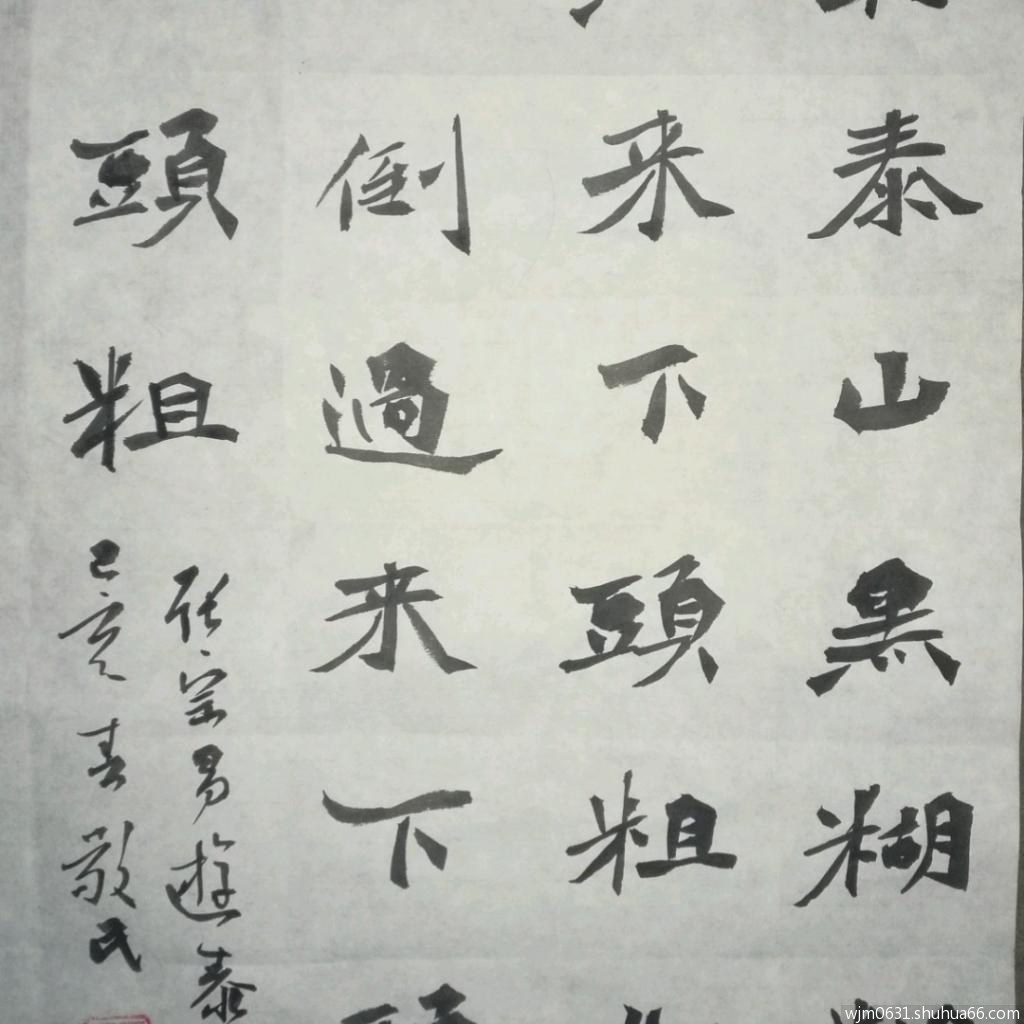 泰山黑糊
来下頭粗
倒過来下
頭粗
張宗昌遊泰
己亥春敬民
wjm0631.shuhua66.com